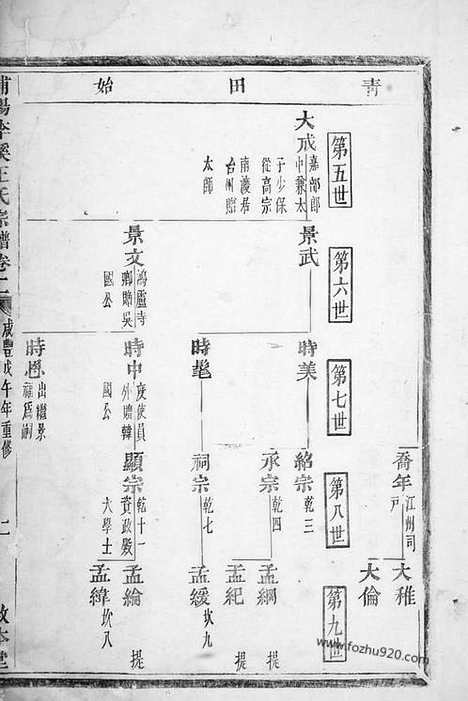 青田始
第五世
大成 嘉部郎中兼太子少保從高宗南渡居台州贈太師
第六世
景武
景文 鴻臚寺卿贈吳國公
第七世
時美
時髦
時中 度使員外贈韓國公
時恩 出繼景 為嗣
第八世
喬年 江州司戶
紹宗 乾三
永宗 乾四
祠宗 乾七
顯宗 乾十一資政殿大學士
第九世
大稚
大倫
孟綱 提
孟紀 提
孟緩 坎九
孟綸 提
孟緯 坎八
浦陽 溪王氏宗譜卷十二
咸豐戊午年重修
二
敦本堂
www.fozhu920.com